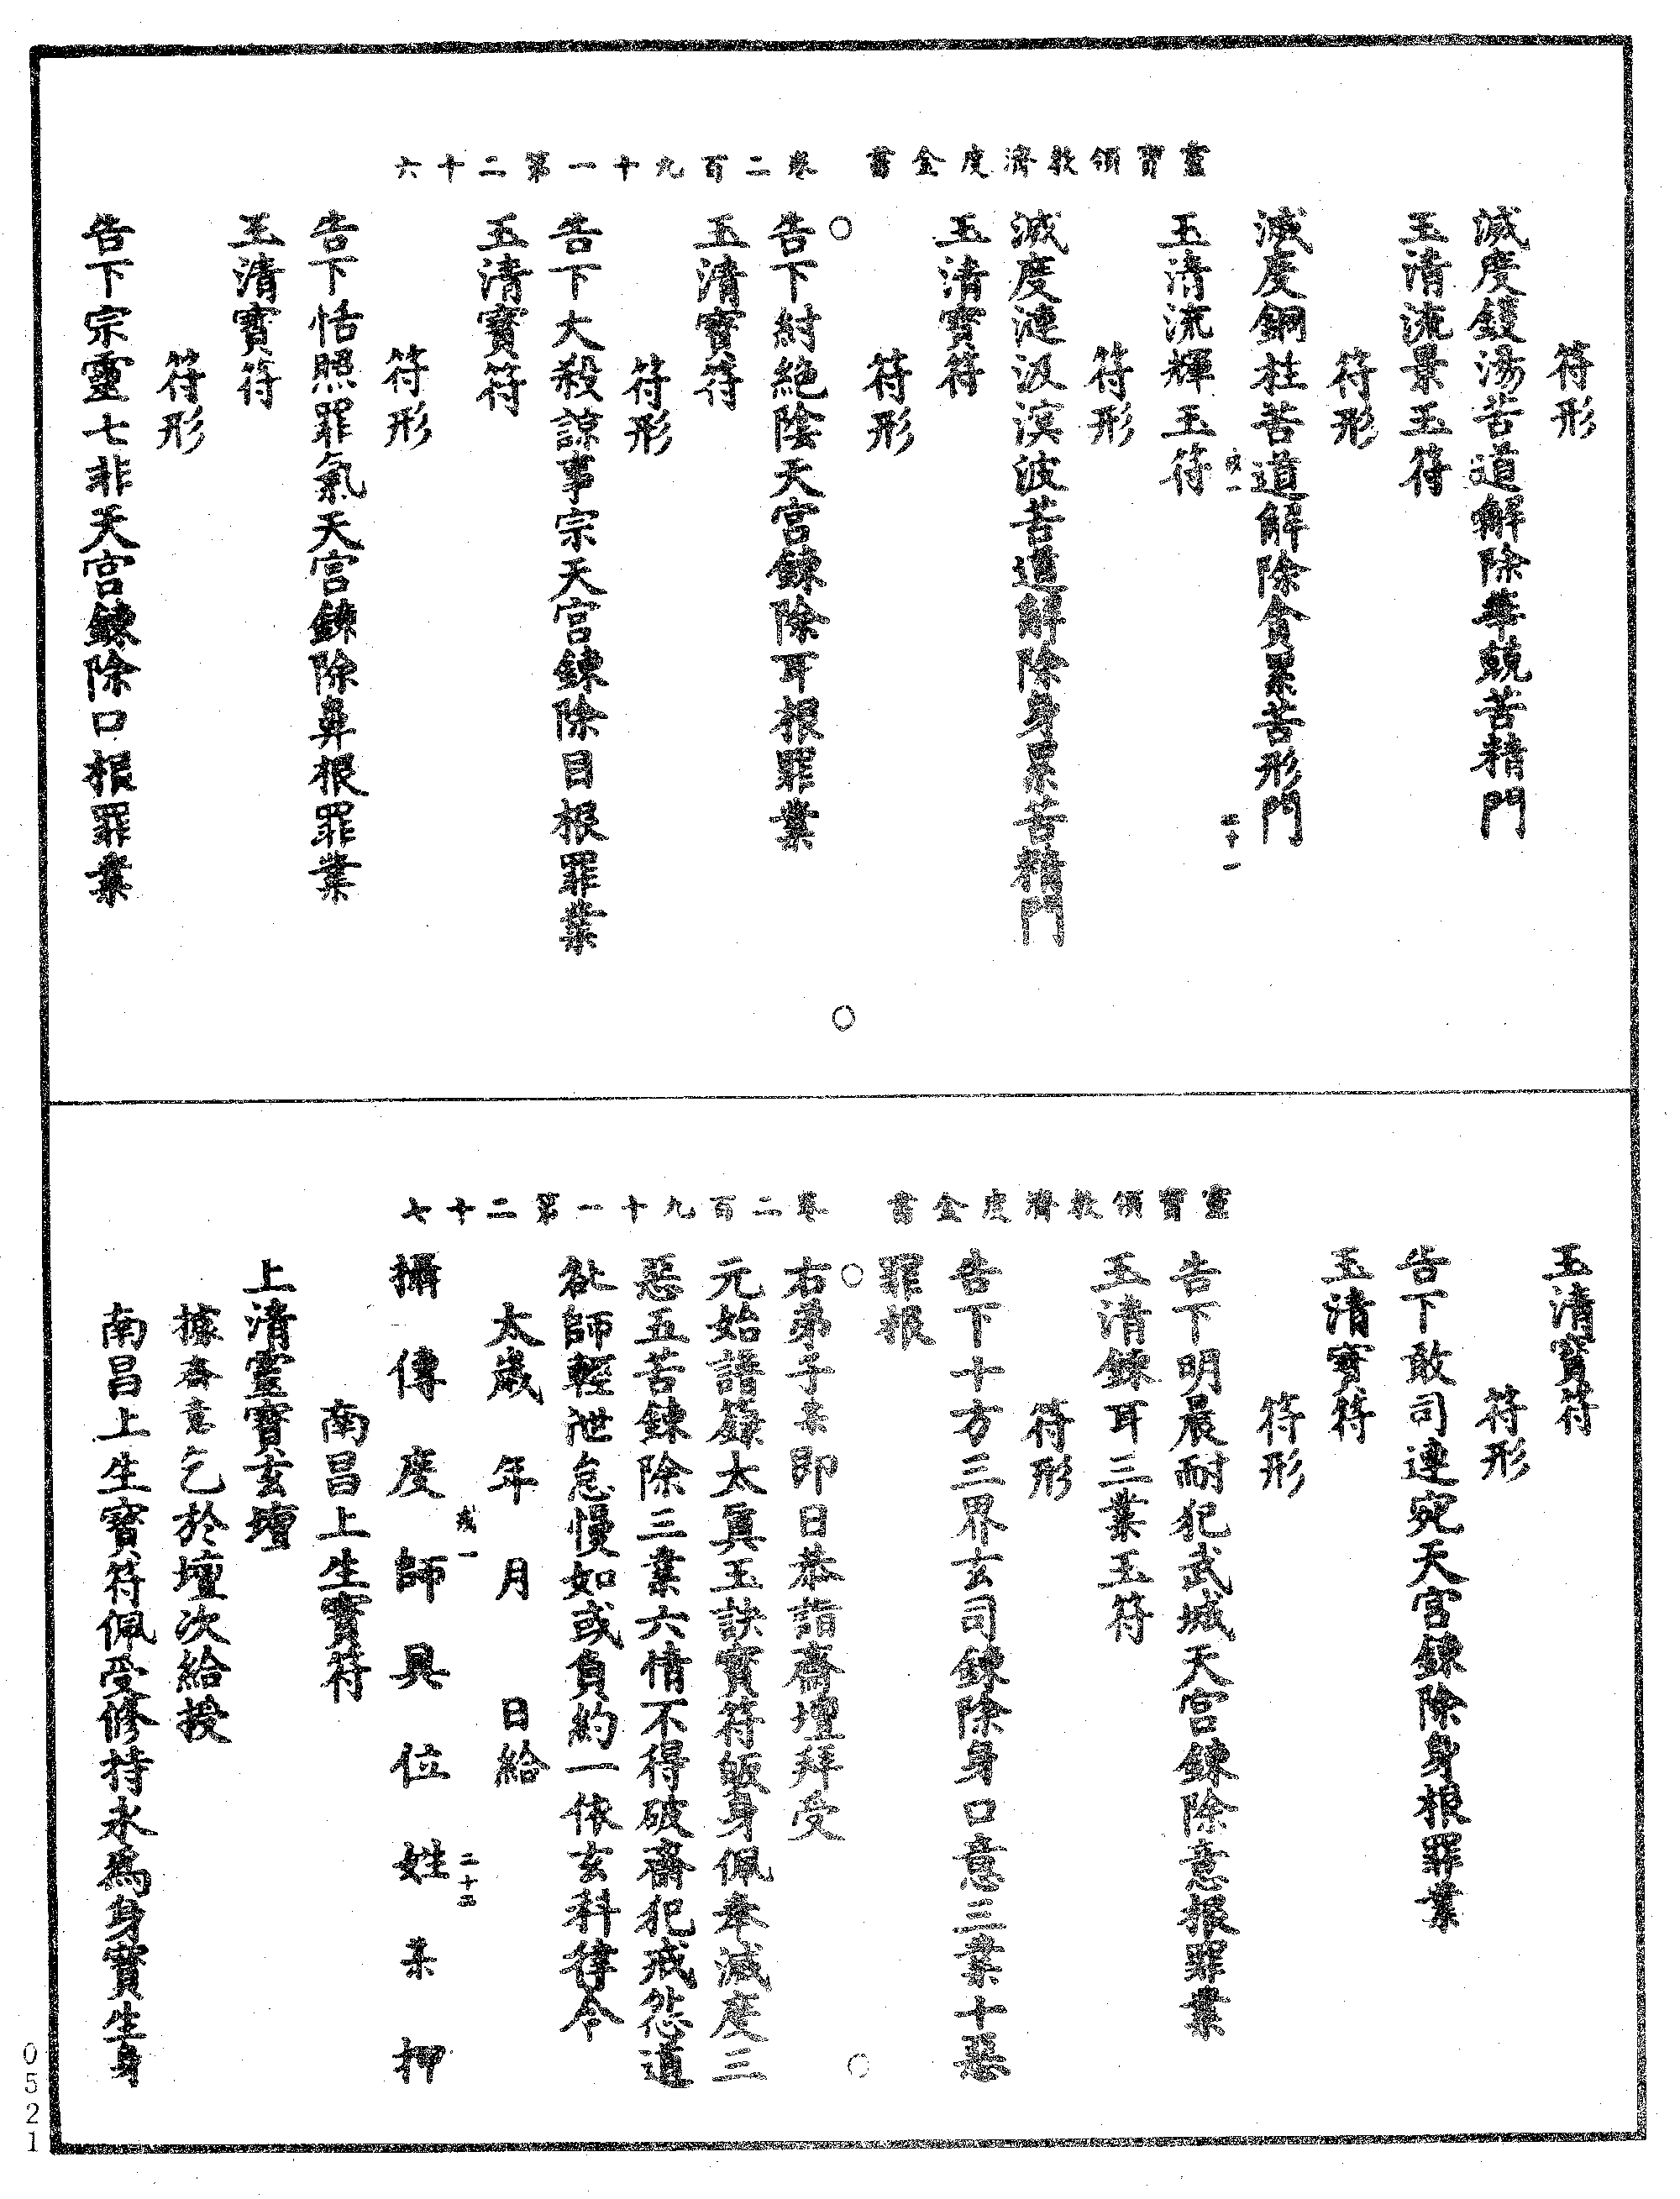 靈寶領教濟度金書　卷二百九十一第二十六
符形
滅度鑊湯苦道解除華競苦精門
玉清流景玉符
符形
滅度銅柱苦道解除貪累苦形門
二十一
玉清流輝玉符
符形
滅度漣汲溟波苦道解除身累苦精門
玉清寶符
符形
告下紂絕陰天宮鍊除耳根罪業
玉清寶符
符形
告下大殺諒事宗天宮鍊除目根罪業
玉清寶符
符形
告下恬照罪氣天宮鍊除鼻根罪業
玉清寶符
符形
告下宗靈七非天宮鍊除口根罪業
靈寶領教濟度金書　卷二百九十一第二十七
玉清寶符
符形
告下敢司連宛天宮鍊除身根罪業
玉清寶符
符形
告下明晨耐犯武城天宮鍊除意根罪業
玉清鍊耳三業玉符
符形
告下十方三界玄司鍊除身口意三業十惡
罪根
右弟子某即日恭詣齋壇拜受
元始譜籙太真玉訣寶符皈身佩奉滅度三
惡五苦鍊除三業六情不得破齋犯戒怨道
欲師輕泄怠慢如或負約一依玄科律令
太歲　年　月　　日給
二十二
攝傳度師具位姓某押
南昌上生寶符
上清靈寶玄壇
據齋意乞於壇次給授
南昌上生寶符佩受修持永為身寶生身
0521